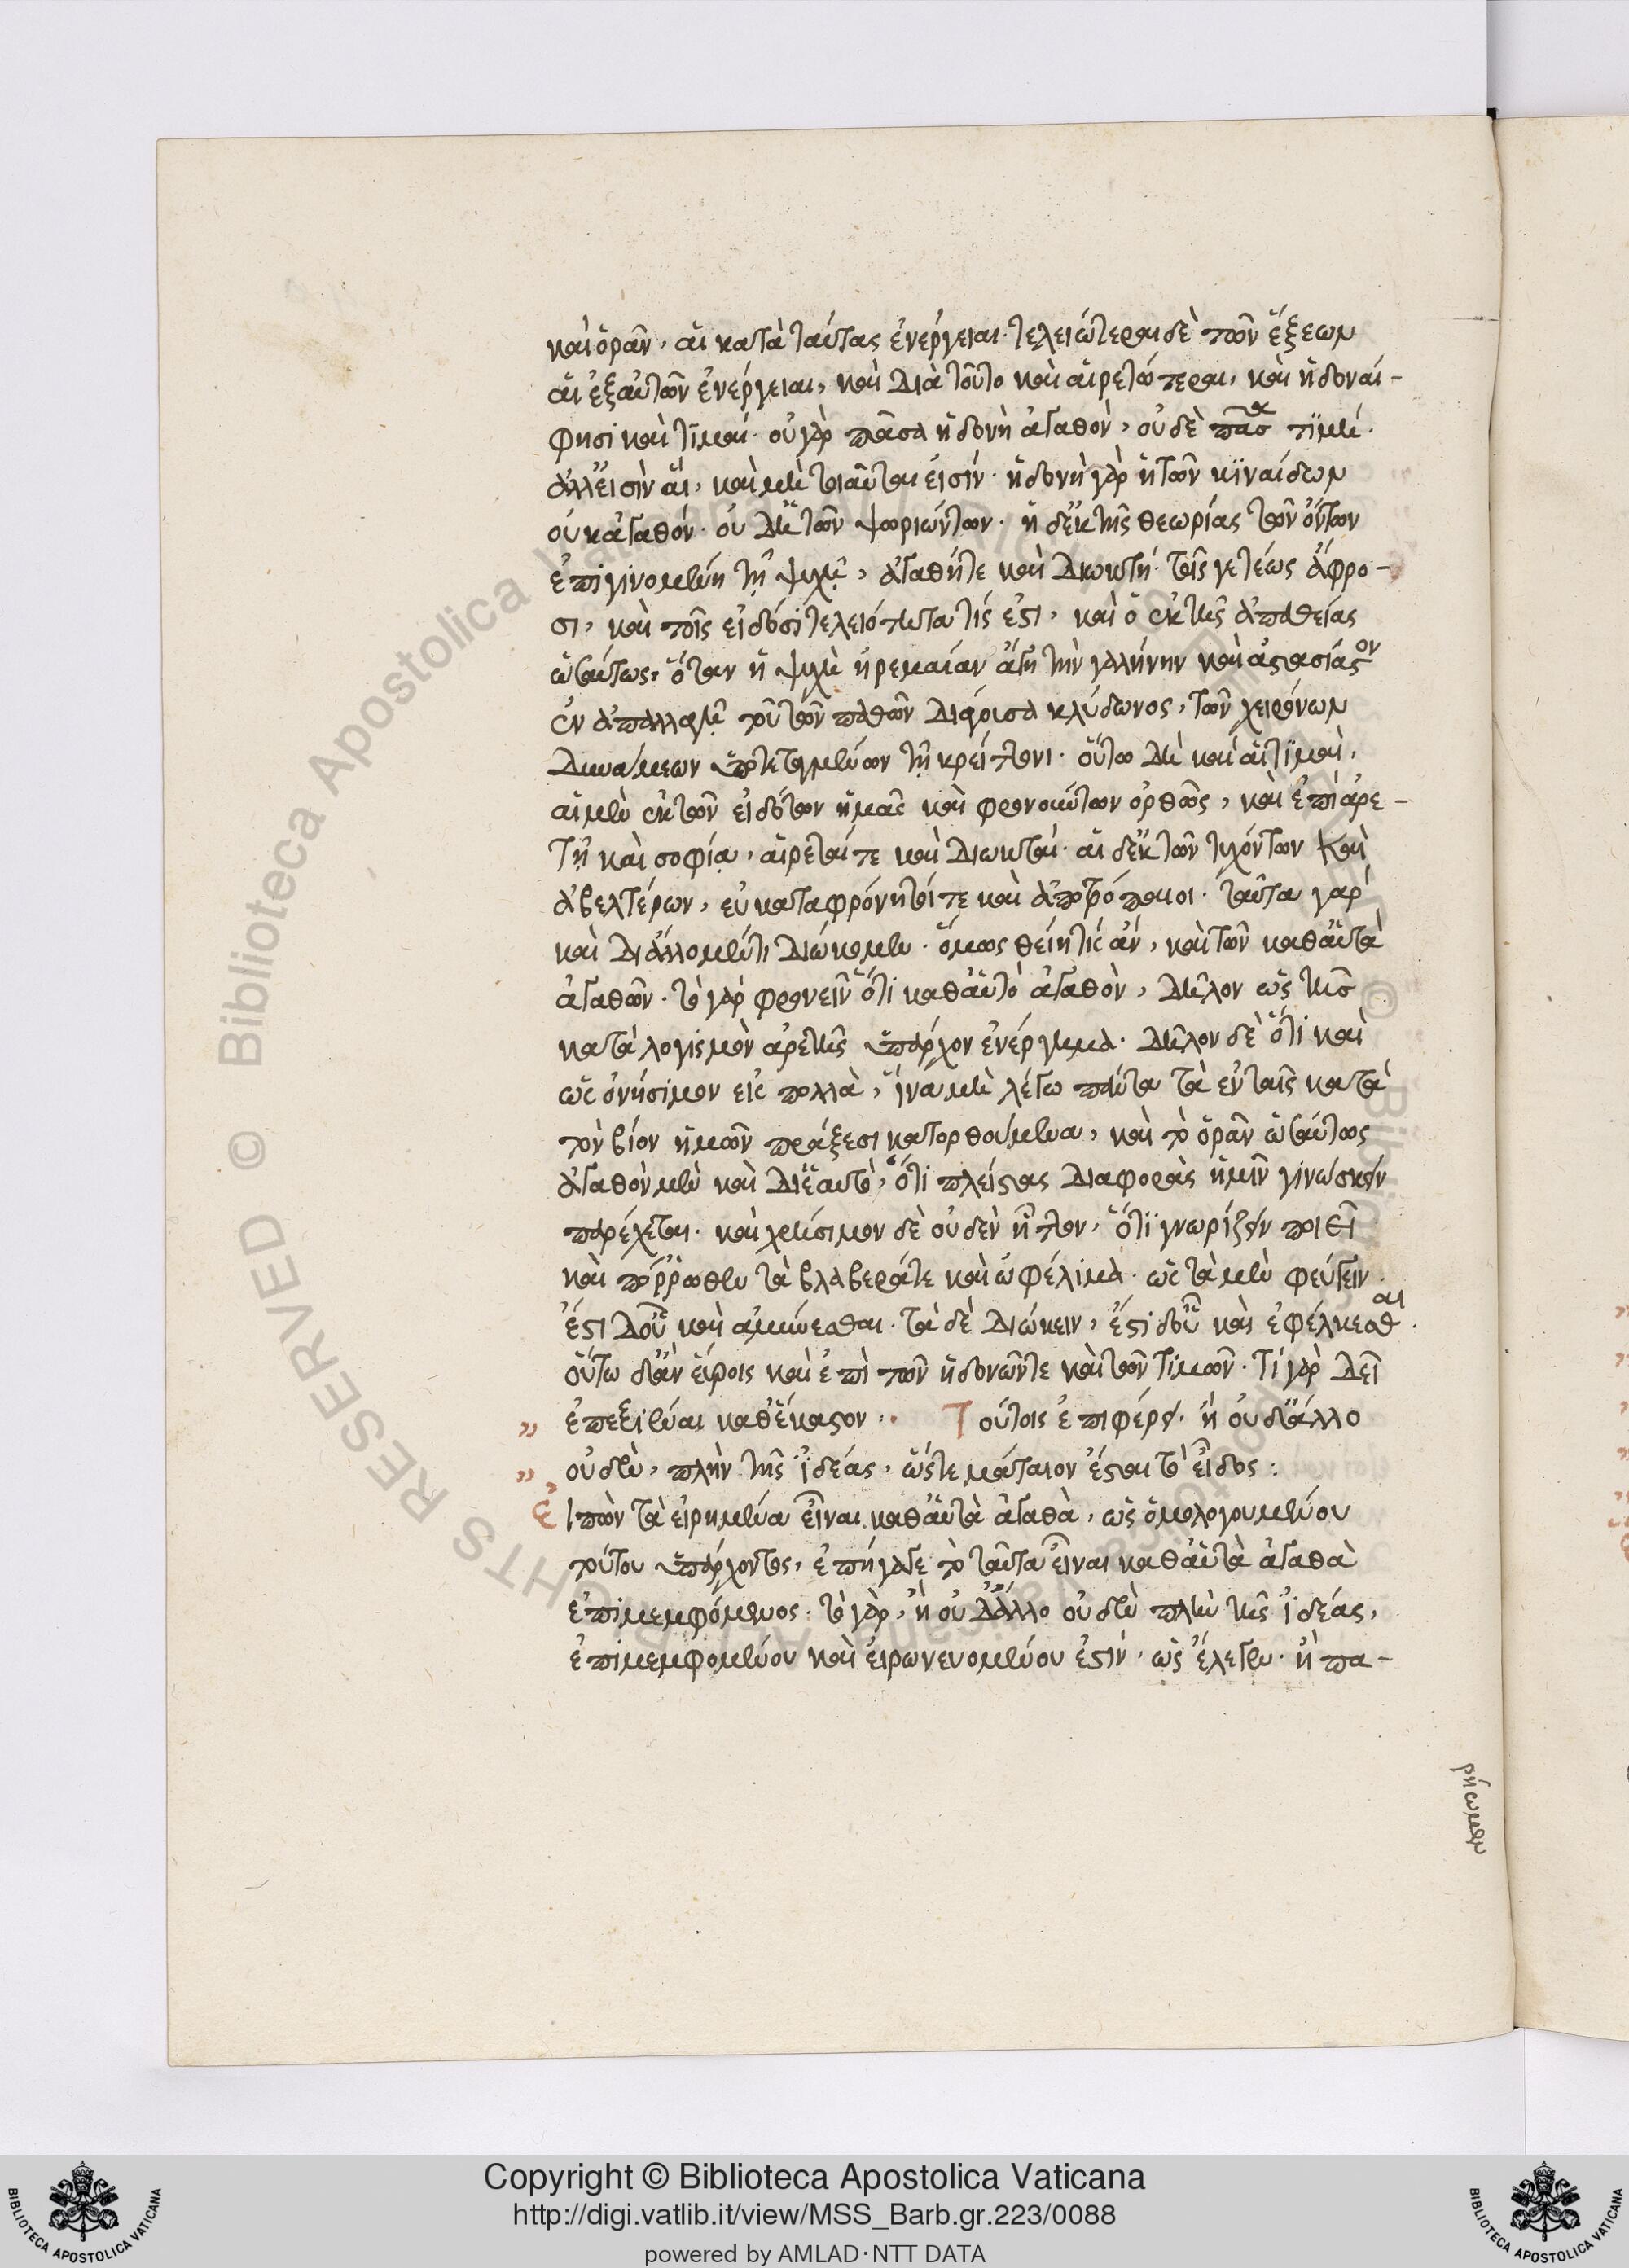 καὶ ὁρᾶν, αἱ κατὰ ταύτας ἐνέργειαι. τελειώτεραι δὲ τῶν ἕξεων
αἱ ἐξ αὐτῶν ἐνέργειαι, καὶ διὰ τοῦτο καὶ αἱρετώτεραι, καὶ ἡδοναί
φησι καὶ τιμαί. οὐ γὰρ πᾶσα ἡδονὴ ἀγαθὸν, οὐδὲ πᾶσα τιμή.
ἀλλ' εἰσὶν αἳ, καὶ μὴ τοιαῦται εἰσίν. ἡδονὴ γὰρ ἡ τῶν κιναίδων
οὐκ ἀγαθόν. οὐδ' ἡ τῶν ψωριώντων. ἡ δ' ἐκ τῆς θεωρίας τῶν ὄντων
ἐπιγινομένη τῇ ψυχῇ, ἀγαθή τε καὶ διωκτή. τοῖς γε τέως ἄφρο-
σι, καὶ τοῖς εἰδόσι τελειότητα τίς ἐστι, καὶ ἡ ἐκ τῆς ἀπαθείας
ὡσαύτως, ὅταν ἡ ψυχὴ ἠρεμαίαν ἄγῃ τὴν γαλήνην καὶ ἀστασίαστον
ἐν ἀπαλλαγῇ τοῦ τῶν παθῶν διάγουσα κλύδωνος, τῶν χειρόνων
δυνάμεων ὑποτεταγμένων τῇ κρείττονι. οὕτω δὴ καὶ αἱ τιμαὶ,
αἱ μὲν ἐκ τῶν εἰδότων ἡμᾶς καὶ φρονούντων ὀρθῶς, καὶ ἐπὶ ἀρε-
τῇ καὶ σοφίᾳ, αἱρεταί τε καὶ διωκταί. αἱ δ' ἐκ τῶν τυχόντων καὶ
ἀβελτέρων, εὐκαταφρόνητοί τε καὶ ἀποτρόπαιοι. ταῦτα γάρ
καὶ δι' ἄλλο μέντι διώκομεν. ὅμως θείη τις ἂν, καὶ τῶν καθ' αὑτὰ
ἀγαθῶν. τὸ γὰρ φρονεῖν ὅτι καθ' αὑτὸ ἀγαθὸν, δῆλον ὡς τῆς
κατὰ λογισμὸν ἀρετῆς ὑπάρχον ἐνέργημα. δῆλον δὲ ὅτι καὶ
ὡς ὀνήσιμον εἰς πολλὰ, ἵνα μὴ λέγω πάντα τὰ ἐν ταῖς κατὰ
τὸν βίον ἡμῶν πράξεσι κατορθούμενα, καὶ τὸ ὁρᾶν ὡσαύτως
ἀγαθὸν μὲν καὶ δι' ἑαυτὸ, ὅτι πλείστας διαφορὰς ἡμῖν γινώσκειν
παρέχεται. καὶ χρήσιμον δὲ οὐδὲν ἧττον, ὅτι γνωρίζειν ποιεῖ
καὶ πόρρωθεν τὰ βλαβερά τε καὶ ὠφέλιμα. ὡς τὰ μὲν φεύγειν
ἔστι δ' οὗ καὶ ἀμύνεσθαι. τὰ δὲ διώκειν, ἔστι δ' οὗ καὶ ἐφέλκεσθαι.
οὕτω δ' ἂν εὕροις καὶ ἐπὶ τῶν ἡδονῶν τε καὶ τῶν τιμῶν. τί γὰρ δεῖ
ἐπεξιέναι καθ' ἕκαστον: Τούτοις ἐπιφέρει. ἢ οὐδ' ἄλλο
οὐδὲν, πλὴν τῆς ἰδέας, ὥστε μάταιον ἔσται τὸ εἶδος:
Εἰπὼν τὰ εἰρημένα εἶναι καθ' αὑτὰ ἀγαθὰ, ὡς ὁμολογουμένου
τούτου ὑπάρχοντος, ἐπήγαγε τὸ ταῦτα εἶναι καθ' αὑτὰ ἀγαθὰ
ἐπιμεμφόμενος. τὸ γὰρ, ἢ οὐδ' ἄλλο οὐδὲν πλὴν τῆς ἰδέας,
ἐπιμεμφομένου καὶ εἰρωνευομένου ἐστίν. ὡς ἔλεγεν. ἢ πα-
Copyright © Biblioteca Apostolica Vaticana
http://digi.vatlib.it/view/MSS_Barb.gr.223/0088
powered by AMLAD·NTT DATA